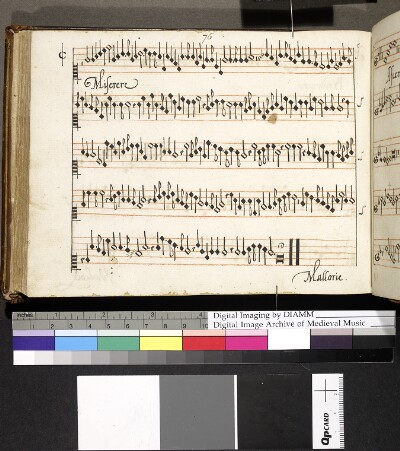 76
Miserere
Mallorie.
inches
Digital Imaging by DIAMM
Digital Image Archive of Medieval Music
QPCARD